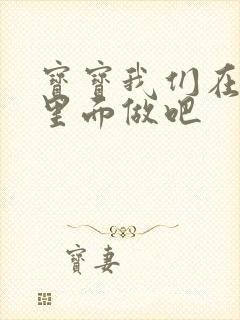 寶寶我们在
里面做吧
寶妻